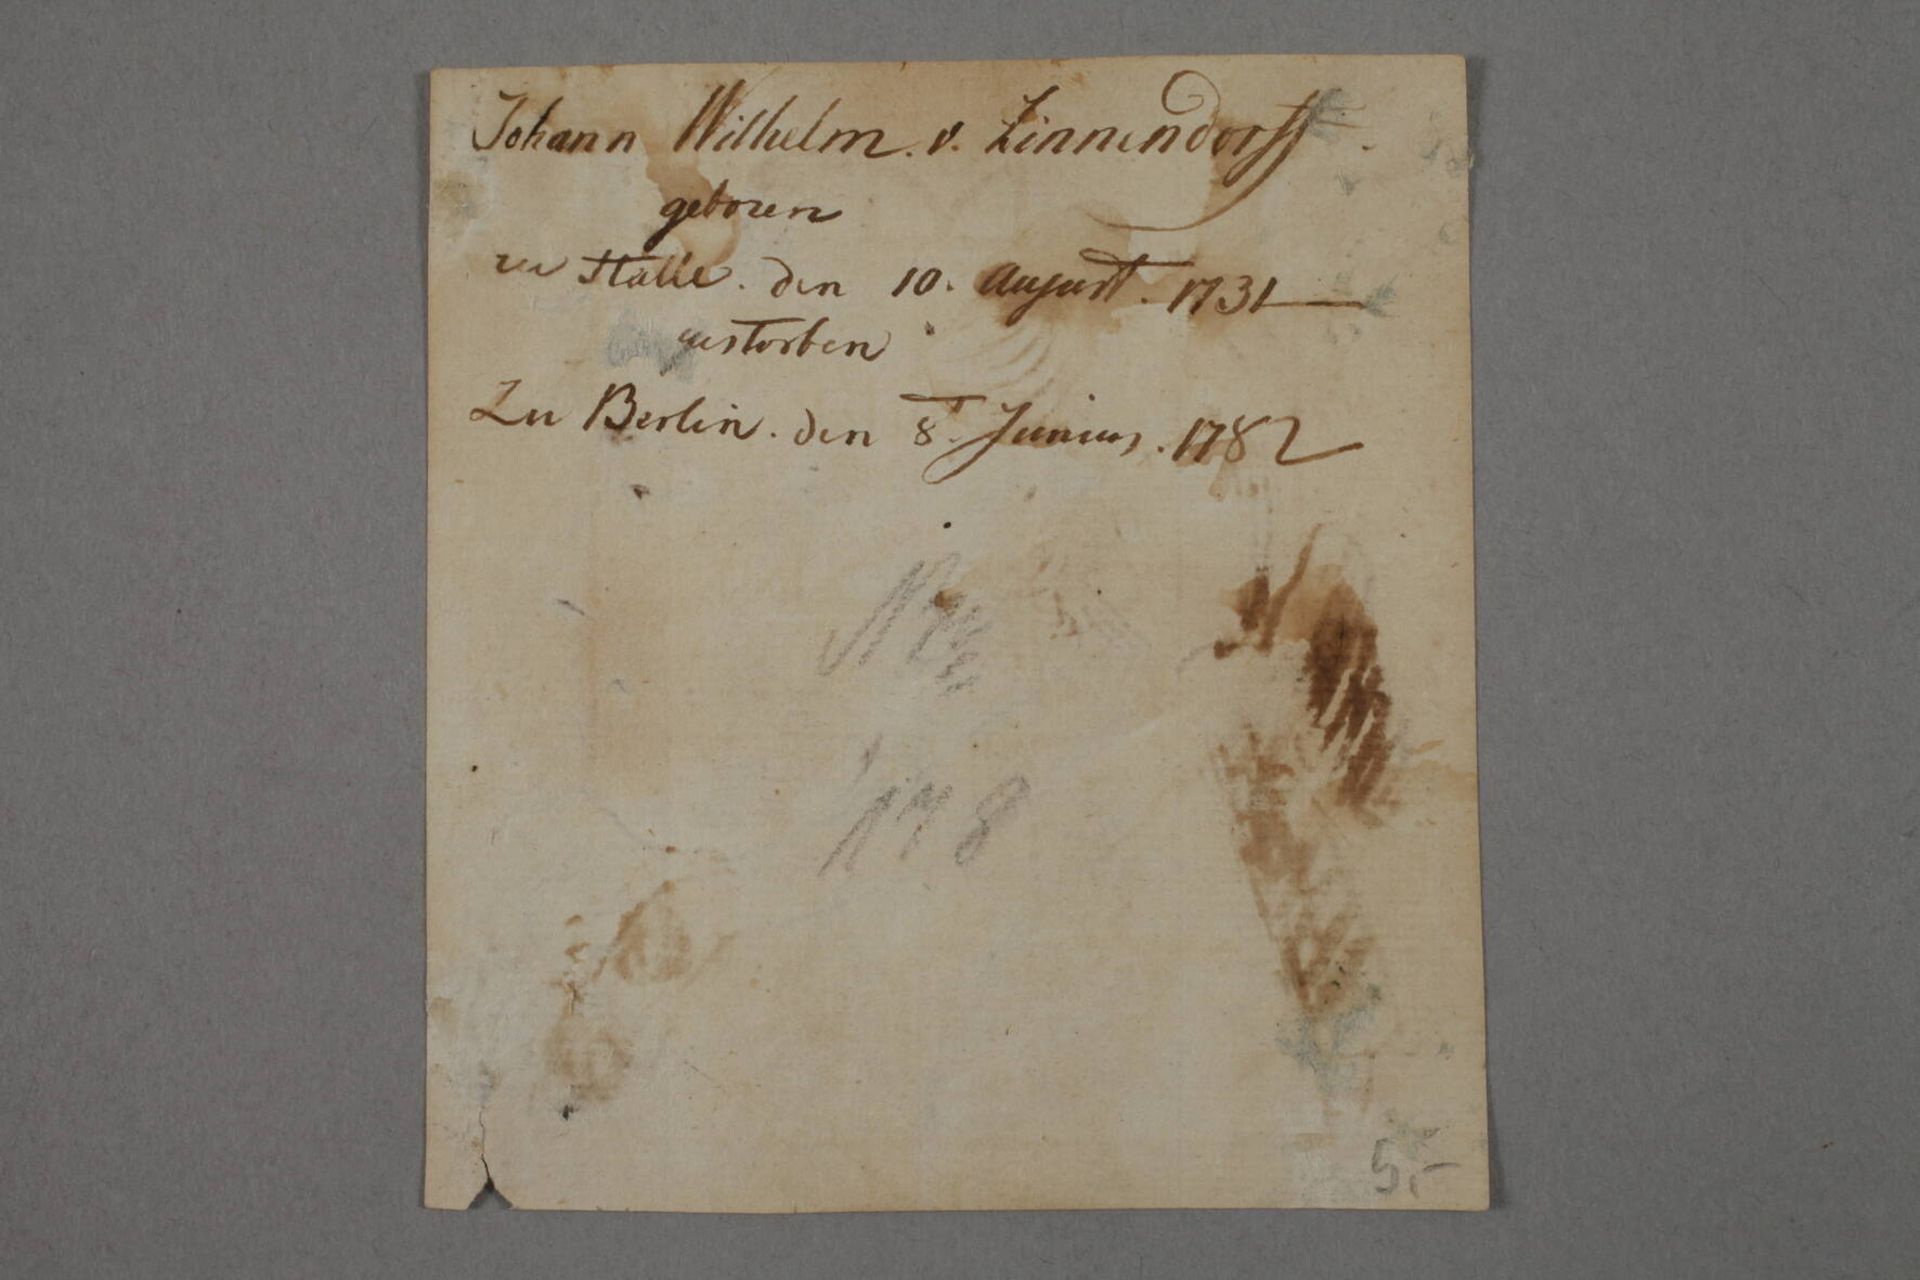 Johann Wilhelm. v. Zinnendorff.
geboren
zu Halle. den 10. August. 1731
gestorben
Zu Berlin. den 8t. Junius. 1782
178
5,-